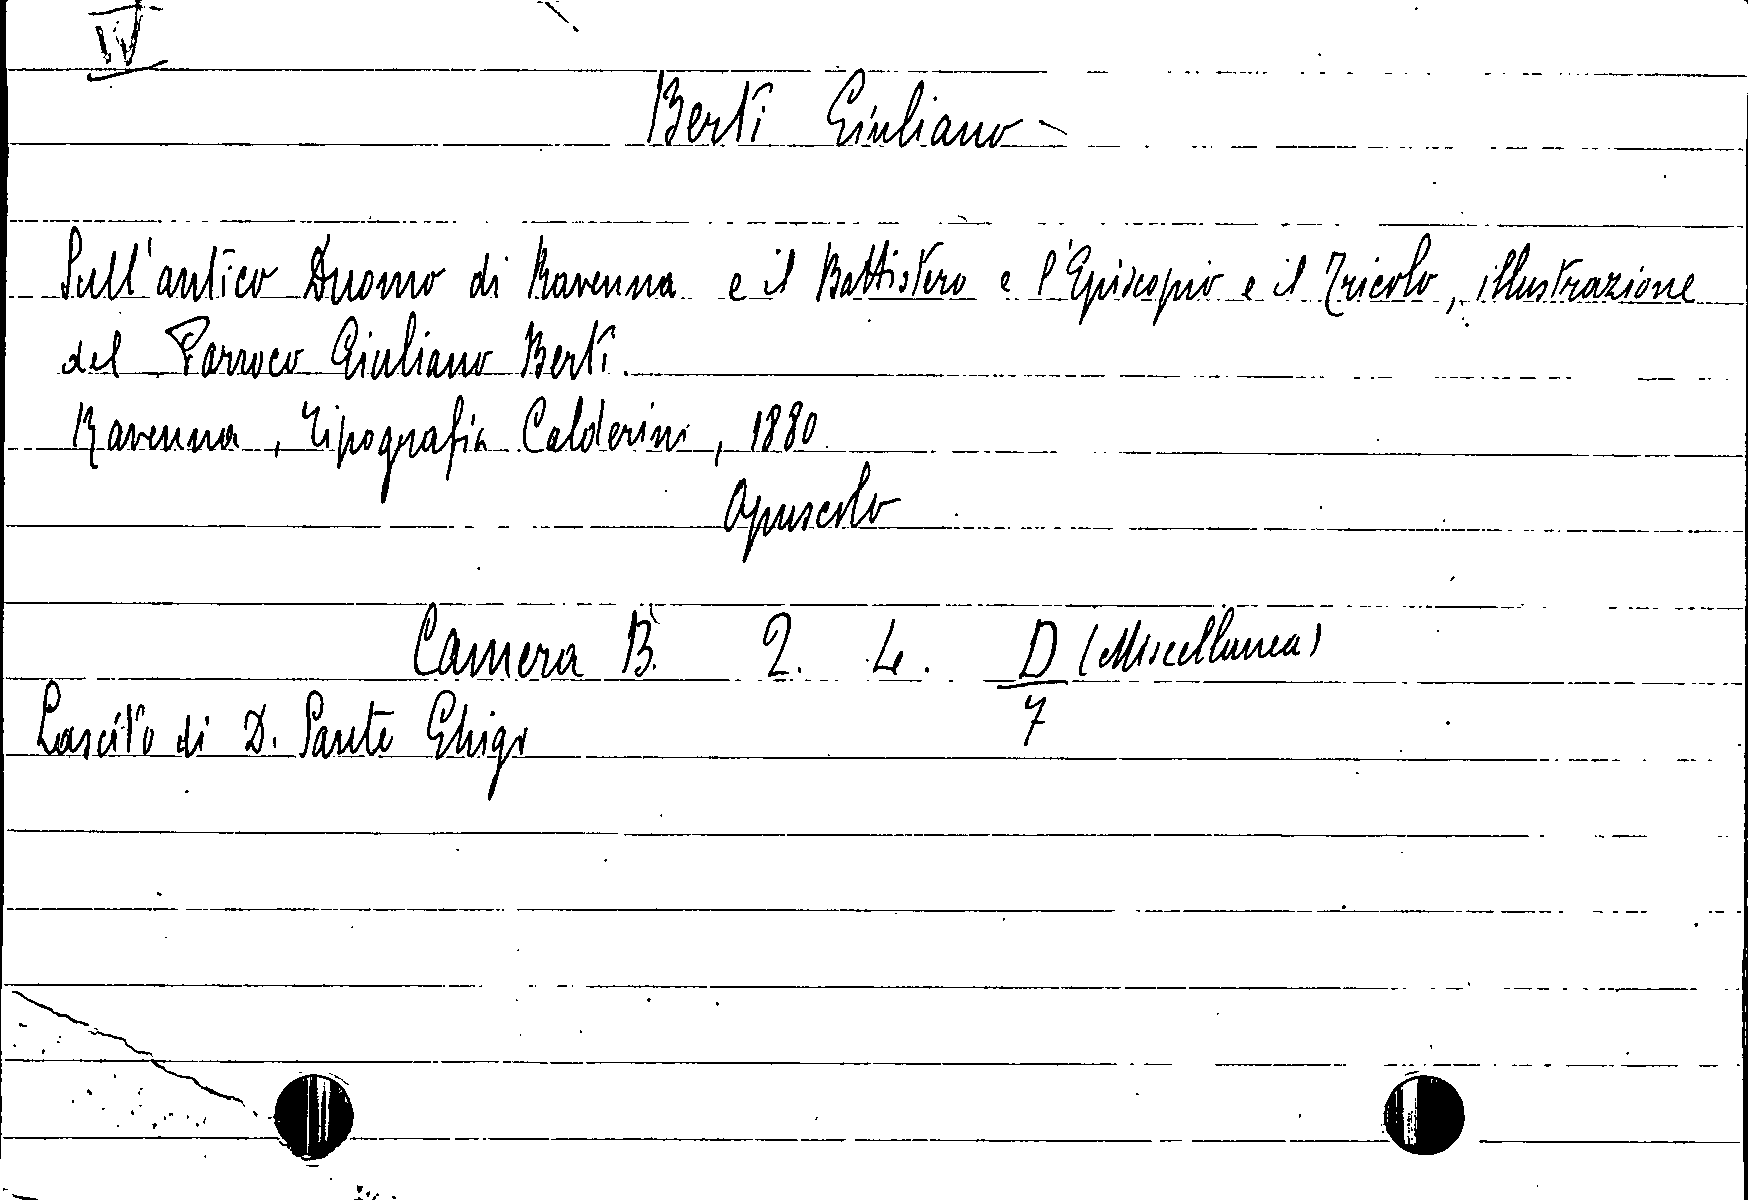 IV
Berti Giuliano -
Sull'antico Duomo di Ravenna e il Battistero e l'Episcopio e il Tricolo, illustrazione
del Parroco Giuliano Berti.
Ravenna, Tipografia Calderini, 1880
Opuscolo
Camera B. 2. 4. D (Miscellanea)
7
Lascito di D. Sante Ghigi